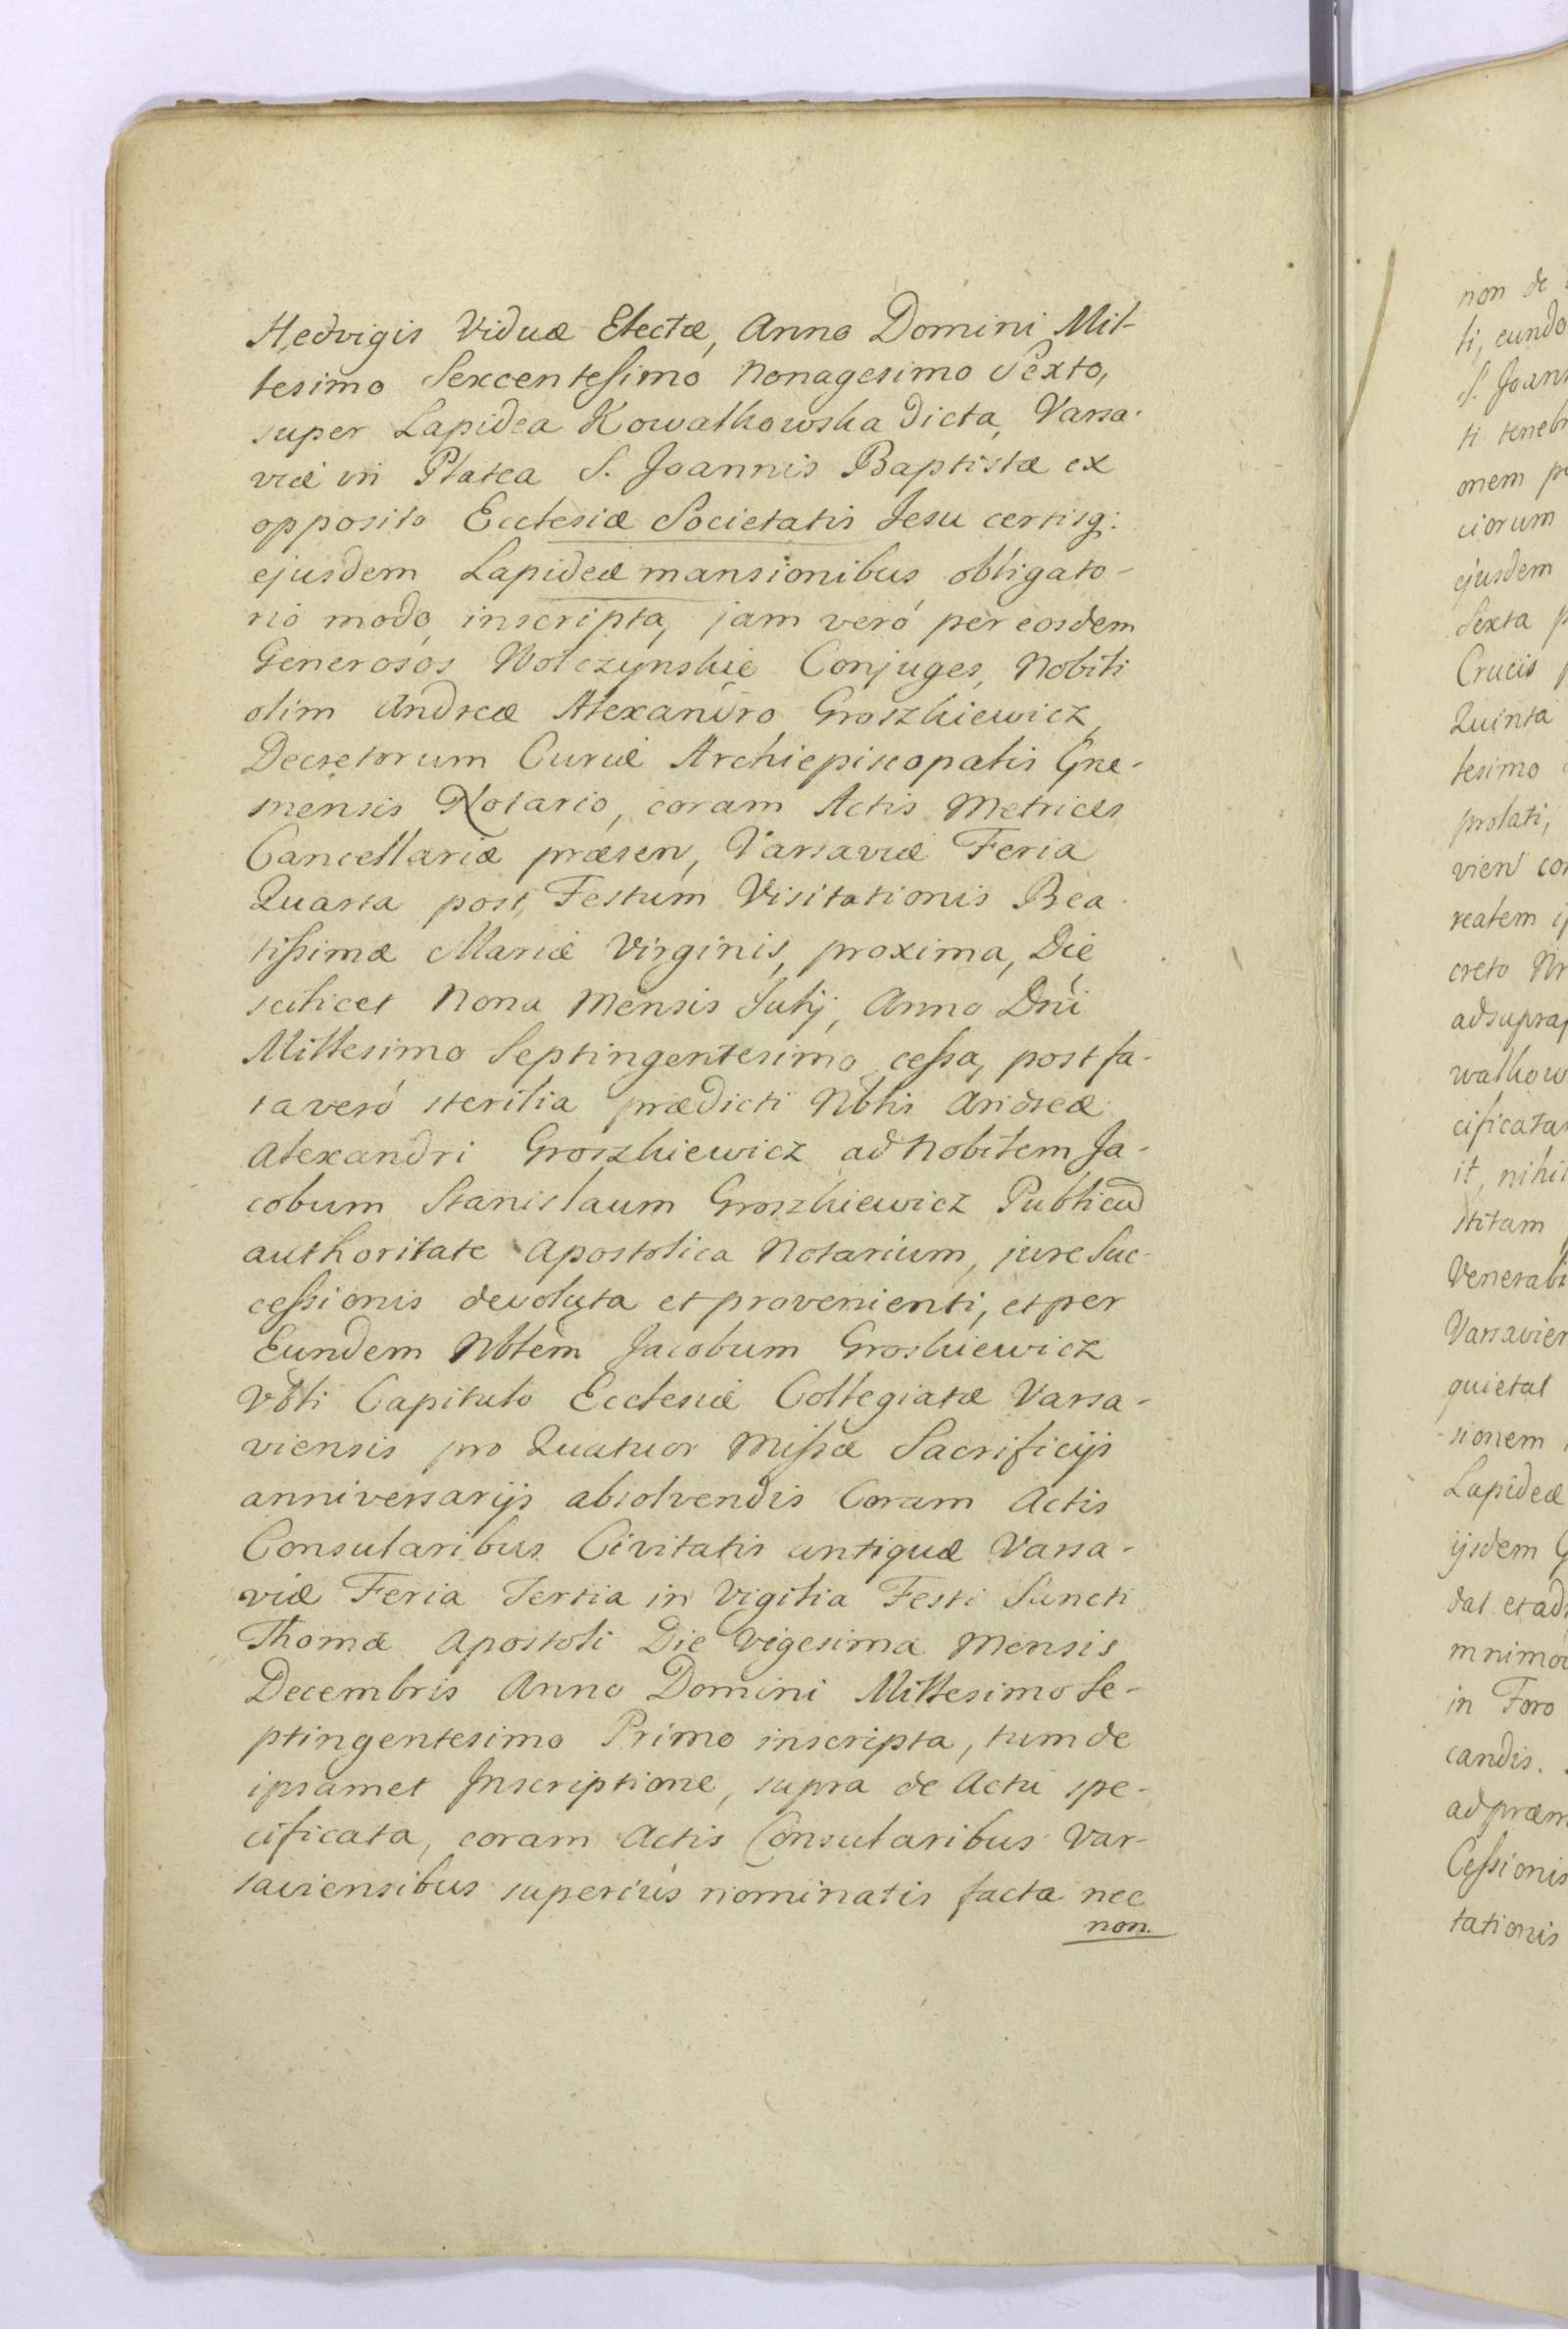 Hedvigis Viduæ Electæ, Anno Domini Mil-
lesimo Sexcentesimo Nonagesimo Sexto,
super Lapidea Kowalkowska dicta, Varsa-
viæ in Platea S. Joannis Baptistæ ex
opposito Ecclesiæ Societatis Jesu certisq:
ejusdem Lapideæ mansionibus obligato-
rio modo, inscripta, jam veró per eosdem
Generosos Wolczynskie Conjuges, Nobili
olim Andreæ Alexandro Groszkiewicz
Decretorum Curiæ Archiepiscopalis Gne-
snensis Notario, coram Actis Metrices
Cancellariæ præsen, Varsaviæ Feria
Quarta post Festum Visitationis Bea-
tissimæ Mariæ Virginis, proxima, Die
scilicet Nona Mensis Julij, Anno Dni
Millesimo Septingentesimo cessa, post fa-
ta veró sterilia prædicti Nblis Andreæ
Alexandri Groszkiewicz ad Nobilem Ja-
cobum Stanislaum Groszkiewicz Publicū
authoritate Apostolica Notarium, jure Suc-
cessionis devoluta et provenienti, et per
Eundem Nblem Jacobum Groskiewicz
Vbli Capitulo Ecclesiæ Collegiatæ Varsa-
viensis pro Quatuor Missæ Sacrificijs
anniversarijs absolvendis Coram Actis
Consularibus Civitatis antiquæ Varsa-
viæ Feria Tertia in Vigilia Festi Sancti
Thomæ Apostoli Die Vigesima Mensis
Decembris Anno Domini Millesimo Se-
ptingentesimo Primo inscripta, tum de
ipsamet Inscriptione, supra de Actu spe-
cificata, coram Actis Consularibus Var-
saviensibus superiús nominatis facta nec
non.
non de
ti, eundo
S. Joann
ti teneb
onem p
ciorum
ejusdem
Sexta p
Crucis
Quinta
lesimo
prolati,
vien co
reatem i
creto Nr
ad suprap
walkow
cificata
it, nihi
stitam
Venerabi
Varsavien
quietat
sionem
Lapideæ
ijsdem G
dat et ad
mnimo
in Foro
candis.
ad præm
Cessionis
tationis